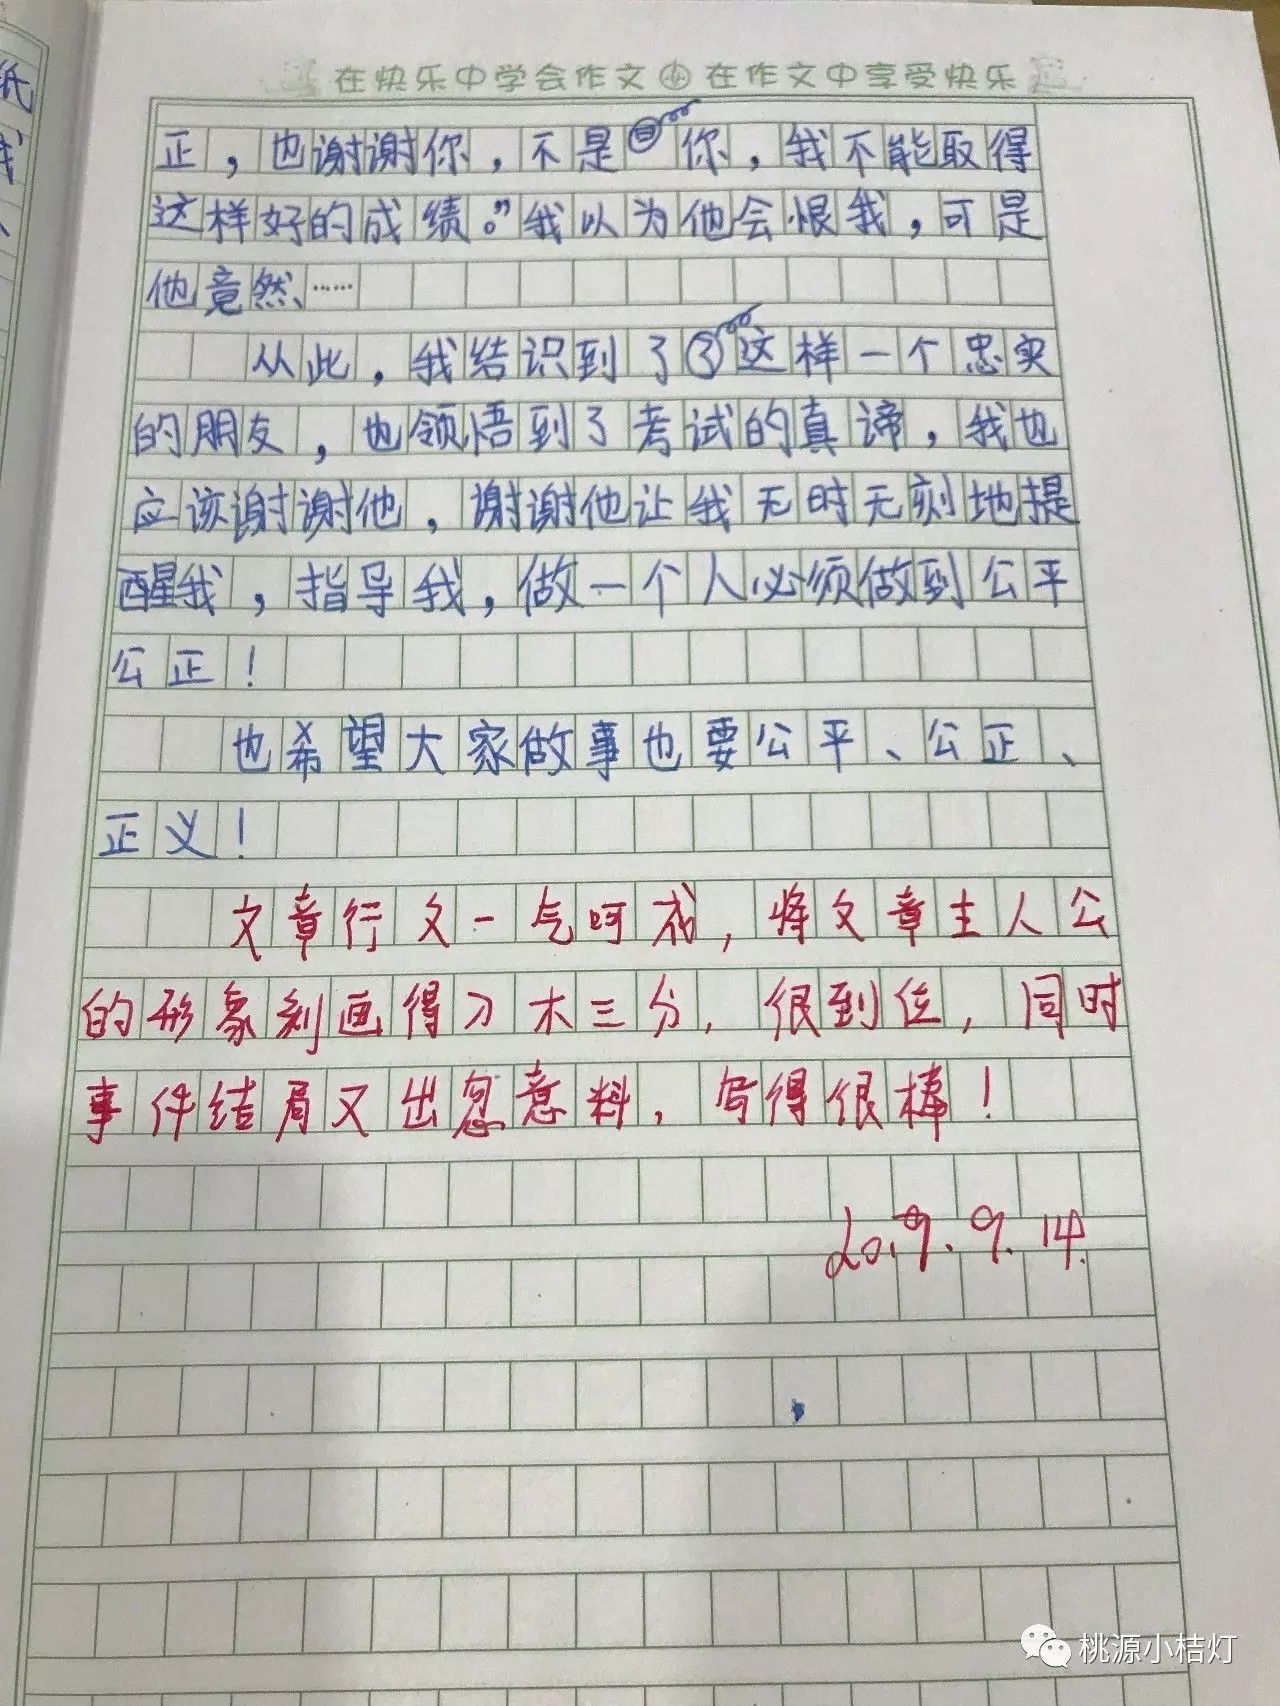 在快乐中学会作文 在作文中享受快乐
正，也谢谢你，不是你，我不能取得
这样好的成绩。”我以为他会恨我，可是
他竟然……
从此，我结识到了这样一个忠实
的朋友，也领悟到了考试的真谛，我也
应该谢谢他，谢谢他让我无时无刻地提
醒我，指导我，做一个人必须做到公平
公正！
也希望大家做事也要公平、公正、
正义！
文章行文一气呵成，将文章主人公
的形象刻画得刀木三分，很到位，同时
事件结局又出忽意料，写得很棒！
2019.9.14.
桃源小桔灯